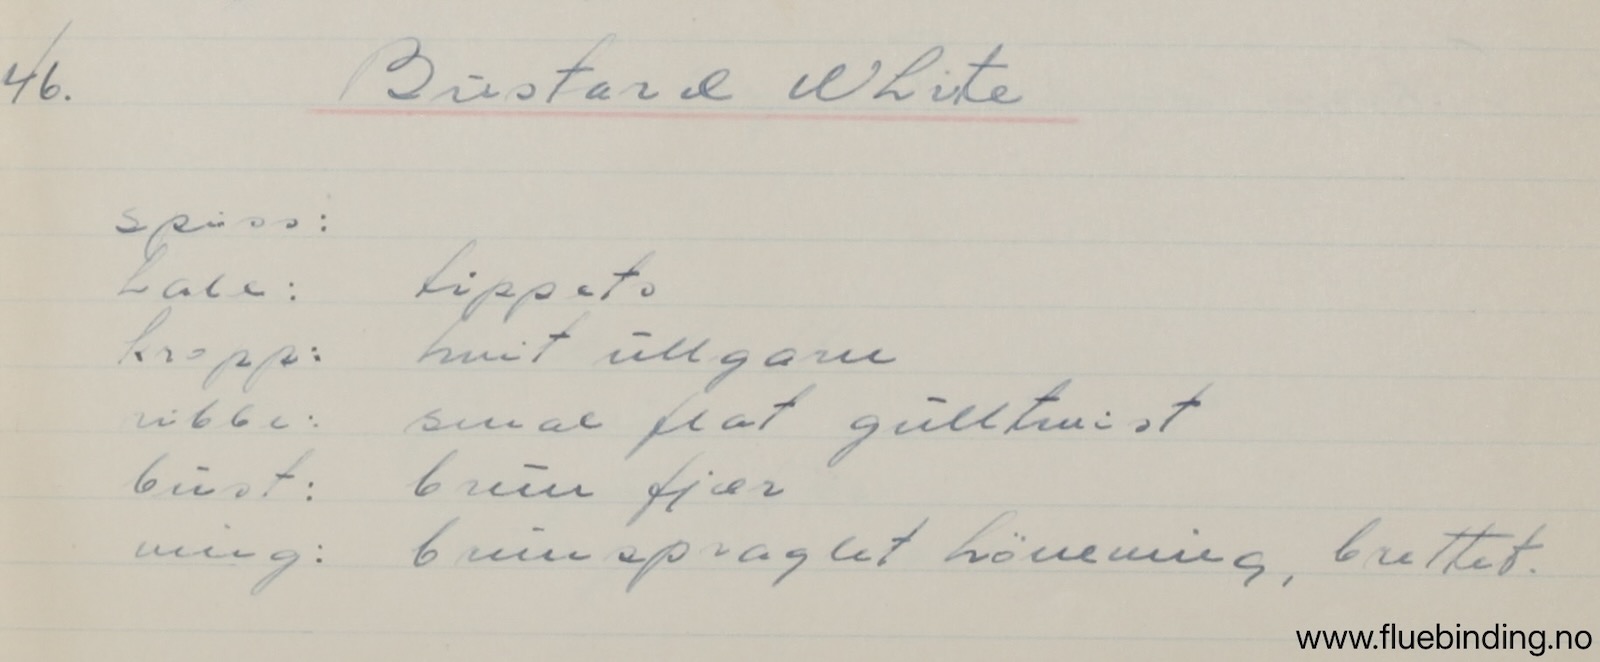 46. Bustard White
spiss:
hale: tippets
kropp: hvit ullgarn
ribbe: smal flat gulltwist
bust: brun fjær
ving: brunspraglet höneving, brettet.
www.fluebinding.no